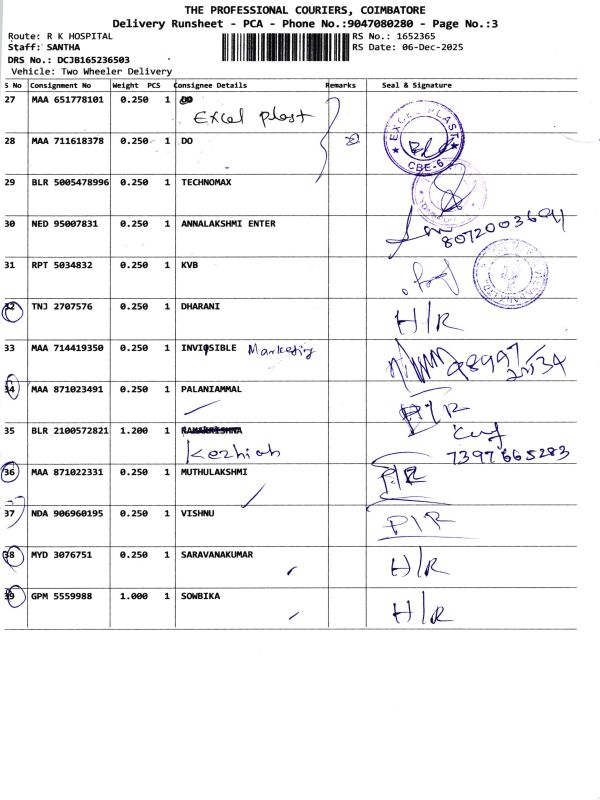 THE PROFESSIONAL COURIERS, COIMBATORE
Delivery Runsheet - PCA - Phone No.:9047080280 - Page No.:3
Route: R K HOSPITAL RS No.: 1652365
Staff: SANTHA RS Date: 06-Dec-2025
DRS No.: DCJB165236503
Vehicle: Two Wheeler Delivery
S No Consignment No Weight PCS Consignee Details Remarks Seal & Signature
27 MAA 651778101 0.250 1 DO
Excel plast
EXCEL PLAST
CBE-6
28 MAA 711618378 0.250 1 DO
29 BLR 5005478996 0.250 1 TECHNOMAX
30 NED 95007831 0.250 1 ANNALAKSHMI ENTER
8072003694
31 RPT 5034832 0.250 1 KVB
32 TNJ 2707576 0.250 1 DHARANI H/R
33 MAA 714419350 0.250 1 INVISIBLE Marketing
34 MAA 871023491 0.250 1 PALANIAMMAL P/R
35 BLR 2100572821 1.200 1 RAMAKRISHNA
Kezhiah 7397665283
36 MAA 871022331 0.250 1 MUTHULAKSHMI P/R
37 NDA 906960195 0.250 1 VISHNU P/R
38 MYD 3076751 0.250 1 SARAVANAKUMAR H/R
39 GPM 5559988 1.000 1 SOWBIKA H/R